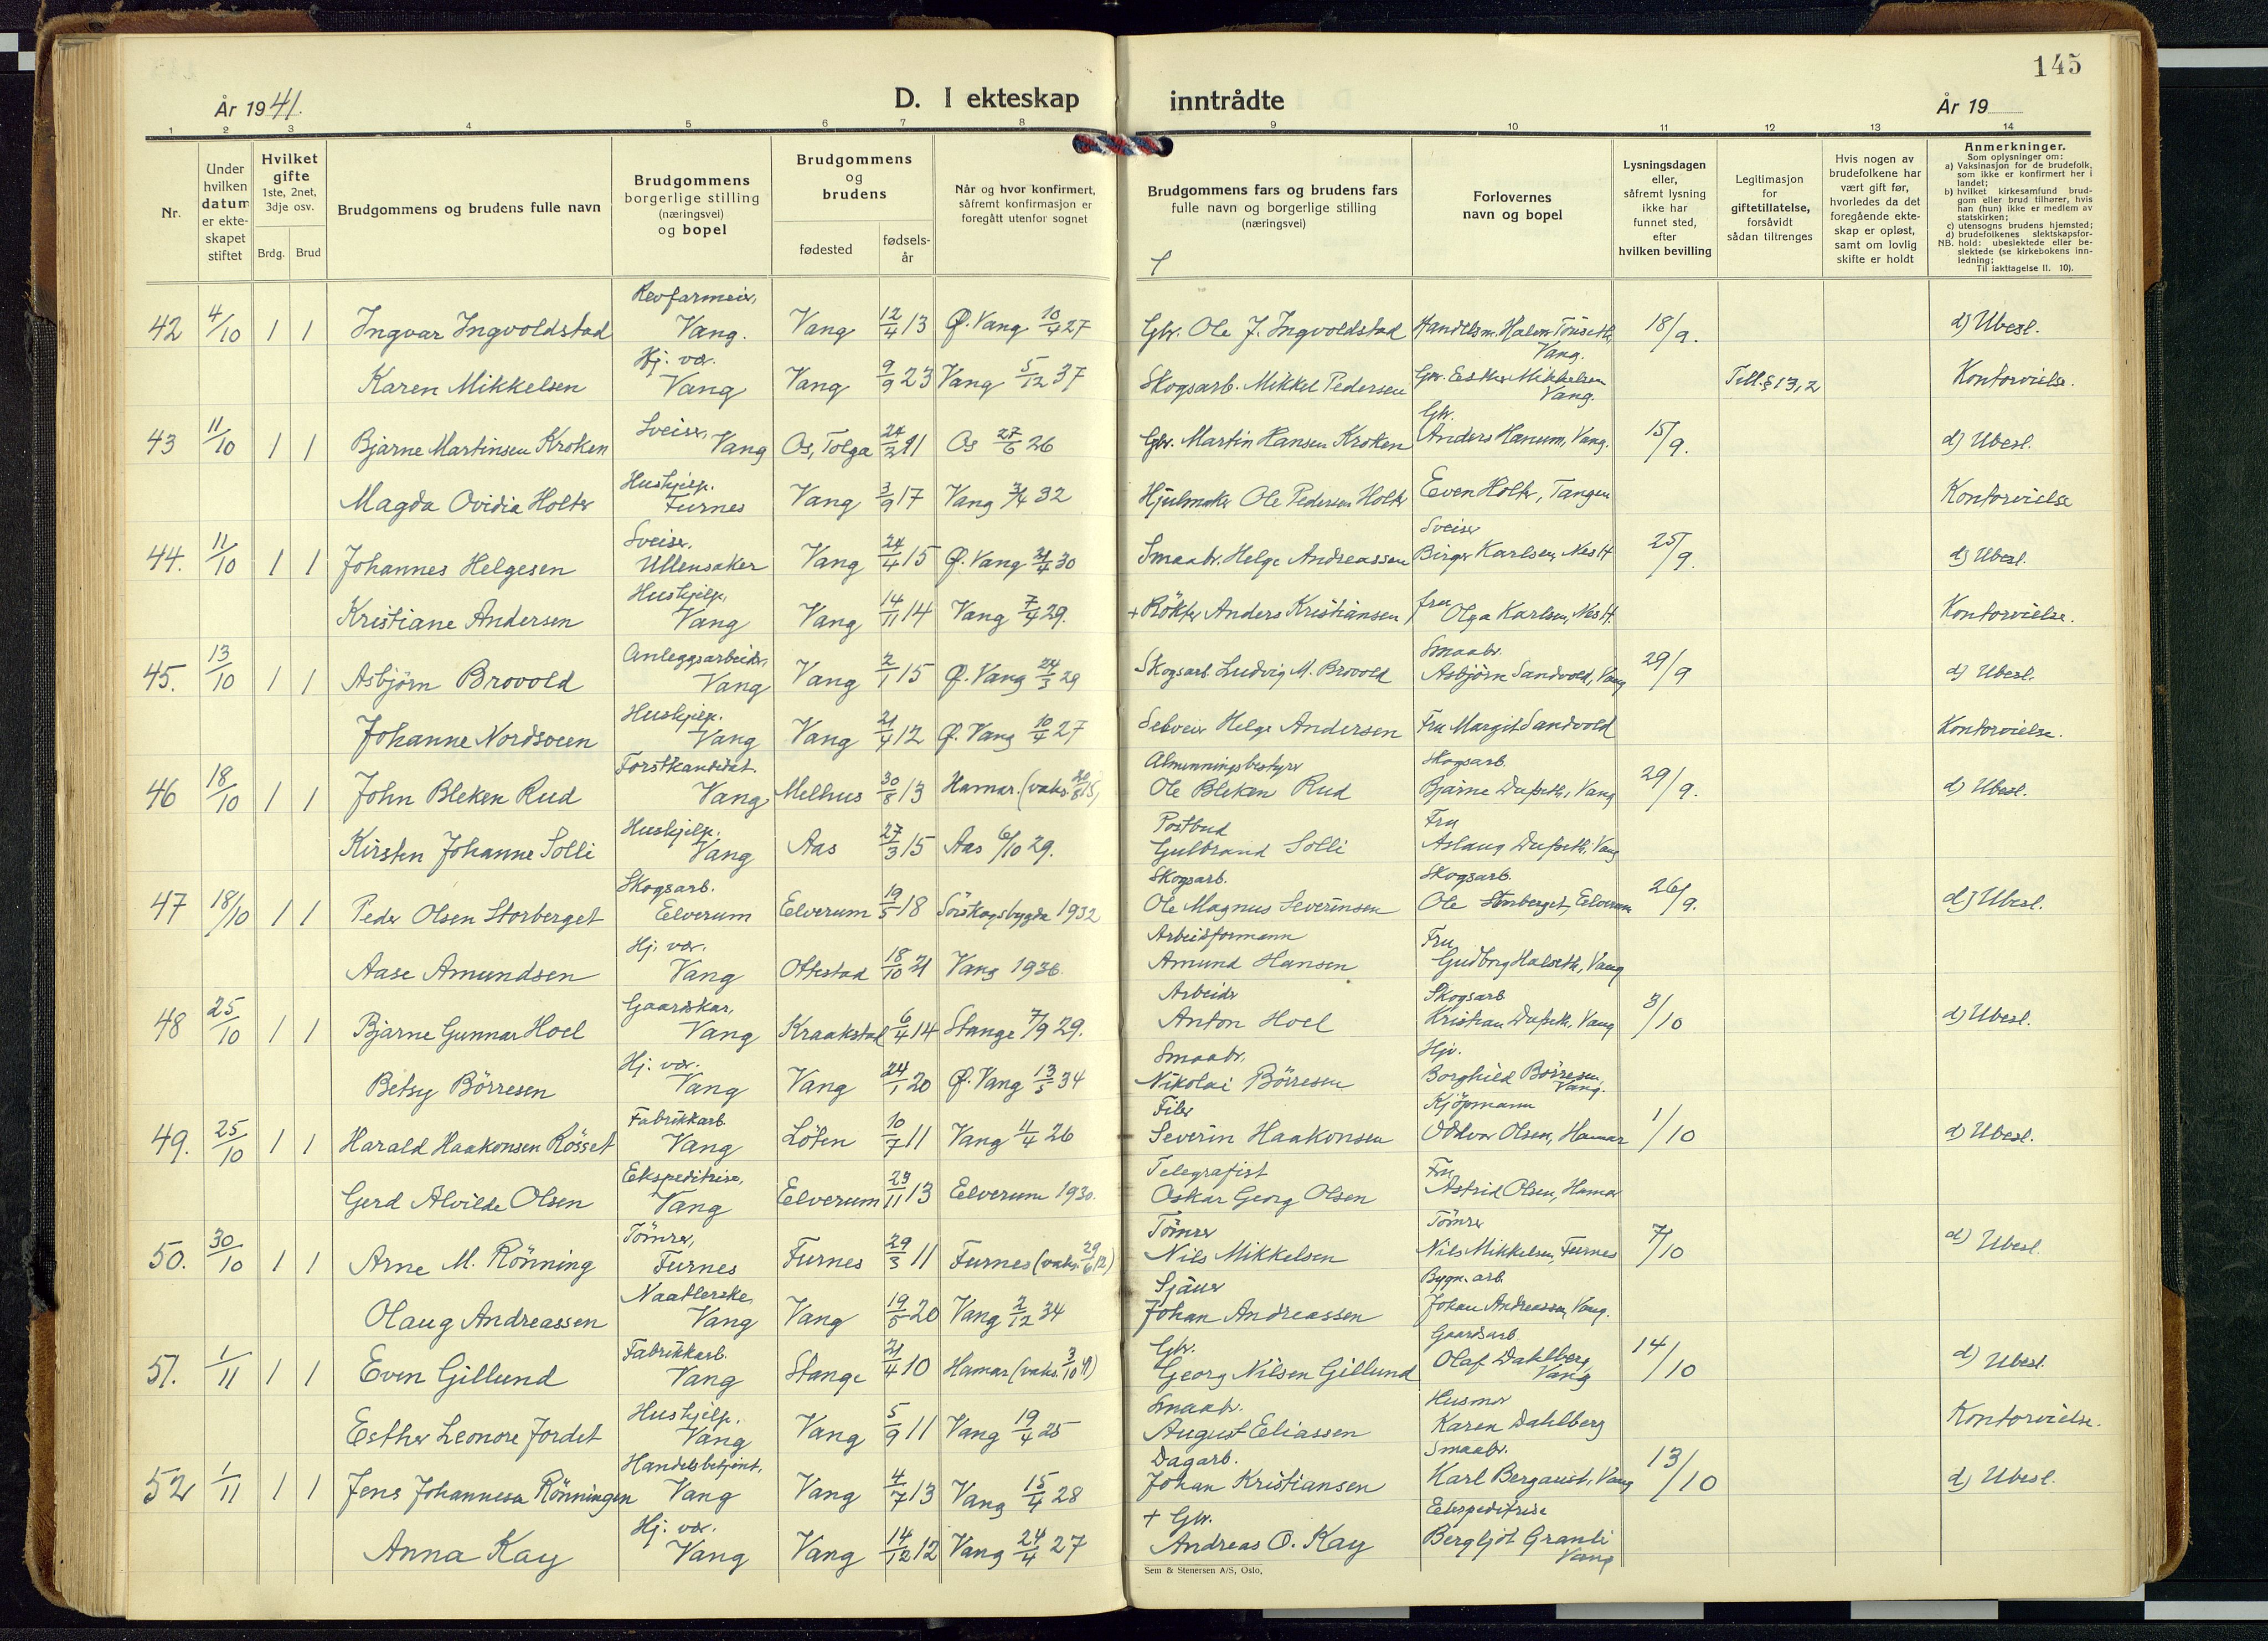 145
År 1941.
D. I ekteskap inntrådte
År 19
1 2 3 4 5 6 7 8 9 10 11 12 13 14
Nr.
Under hvilken datum er ekteskapet stiftet
Hvilket gifte 1ste, 2net, 3dje osv.
Brdg. Brud
Brudgommens og brudens fulle navn
Brudgommens borgerlige stilling (næringsvei) og bopel
Brudgommens og brudens
fødested
fødselsår
Når og hvor konfirmert, såfremt konfirmasjon er foregått utenfor sognet
Brudgommens fars og brudens fars fulle navn og borgerlige stilling (næringsvei)
Forlovernes navn og bopel
Lysningsdagen eller, såfremt lysning ikke har funnet sted, efter hvilken bevilling
Legitimasjon for giftetillatelse, forsåvidt sådan tiltrenges
Hvis nogen av brudefolkene har vært gift før, hvorledes da det foregående ekteskap er opløst, samt om lovlig skifte er holdt
Anmerkninger.
Som oplysninger om:
a) Vaksinasjon for de brudefolk, som ikke er konfirmert her i landet;
b) hvilket kirkesamfund brudgom eller brud tilhører, hvis han (hun) ikke er medlem av statskirken;
c) utensogns brudens hjemsted;
d) brudefolkenes slektskapsforhold: ubeslektede eller beslektede (se kirkebokens innledning;
NB. Til iakttagelse II. 10).
42 4/10 1 1 Ingvar Ingvoldstad Revfarmeier, Vang. Vang 12/4 13 Ø. Vang 10/4 27 Gbr. Ole J. Ingvoldstad Handelsm. Halvor Tönseth, Vang. 18/9. d) Ubesl.
Karen Mikkelsen Hj. vær. Vang Vang 9/9 23 Vang 5/12 37 Skogsarb. Mikkel Pedersen Esther Mikkelsen Vang. Till. § 13,2 Kontorvielse.
43 11/10 1 1 Bjarne Martinsen Kroken Sveiser, Vang Os, Tolga 11 Os 27/6 26 Gbr. Martin Hansen Kroken Gbr. Anders Hanum, Vang. 15/9. d) Ubesl.
Magda Ovidia Holter Hushjelp. Furnes Vang 3/9 17 Vang 3/4 32 Hjulmaker Ole Pedersen Holter Even Holter, Tangen Kontorvielse
44. 11/10 1 1 Johannes Helgesen Sveiser, Ullensaker Vang 24/4 15 Ø. Vang 30 Smaabr. Helge Andreassen Sveiser Birger Karlsen, Nes H 25/9. d) Ubesl.
Kristiane Andersen Hushjelp, Vang Vang 14/11 14 Vang 7/4 29. + Røkter Anders Kristiansen fru Olga Karlsen, Nes H. Kontorvielse.
45. 13/10 1 1 Asbjörn Brovold Anleggsarbeider, Vang Vang 2/1 15 Ø. Vang 24/3 29 Skogsarb. Ludvig M. Brovold Smaabr. Asbjörn Sandvold, Vang 29/9 d) Ubesl.
Johanne Nordsveen Hushjelp. Vang Vang 21/4 12 Ø. Vang 10/4 27 Selveier Helge Andersen Fru Margit Sandvold Kontorvielse.
46 18/10 1 1 John Bleken Rud Forstkandidat. Vang Melhus 30/8 13 Hamar. (vaks. 15) Almenningsbestyrer Ole Bleken Rud Skogsarb. Bjarne Dufseth, Vang 29/9. d) Ubesl.
Kirsten Johanne Solli Hushjelp. Vang Aas 27/3 15 Aas 6/10 29. Postbud Gulbrand Solli Fru Aslaug Dufseth, Vang
47 18/10 1 1 Peder Olsen Storberget Skogsarb. Elverum Elverum 19/5 18 Sörskogsbygda 1932 Skogsarb. Ole Magnus Severinsen Skogsarb. Ole Storberget, Elverum 26/9. d) Ubesl.
Aase Amundsen Hj. vær. Vang Ottestad 18/10 21 Vang 1936. Arbeidsformann Amund Hansen Fru Gudborg Halseth, Vang
48 25/10 1 1 Bjarne Gunnar Hoel Gaardskar, Vang Kraakstad 6/4 14 Stange 7/9 29. Arbeider Anton Hoel Skogsarb Kristian Dufseth, Vang 3/10 d) Ubesl.
Betsy Börresen Hj. vær. Vang Vang 24/1 20 Ø. Vang 13/5 34 Smaabr. Nikolai Börresen Hjv. Borghild Börresen, Vang.
49. 25/10 1 1 Harald Haakonsen Rösset Fabrikkarb. Vang Löten 10/7 11 Vang 11/4 26 Filer Severin Haakonsen Kjöpmann Oddvar Olsen, Hamar 1/10 d) Ubesl.
Gerd Alvilde Olsen Ekspeditrise, Vang Elverum 23/11 13 Elverum 1930. Telegrafist Oskar Georg Olsen Fru Astrid Olsen, Hamar
50. 30/10 1 1 Arne M. Rönning Tömrer, Furnes Furnes 29/3 11 Furnes (vaks. 29/6 12) Tömrer Nils Mikkelsen Tömrer Nils Mikkelsen, Furnes 7/10 d) Ubesl.
Olaug Andreassen Naatlerske, Vang Vang 19/5 20 Vang 2/12 34 Sjauer Johan Andreassen Bygn. arb. Johan Andreassen, Vang.
51. 1/11 1 1 Even Gillund Fabrikkarb. Vang Stange 21/4 10 Hamar (vaks. 3/10 11) Gbr. Georg Nilsen Gillund Gaardsarb. Olaf Dahlberg, Vang 14/10 d) Ubesl.
Esther Leonore Jordet Hushjelp. Vang Vang 5/9 11 Vang 19/4 25 Smaabr. August Eliassen Husmor Karen Dahlberg Kontorvielse.
52 1/11 1 1 Jens Johannesen Rönningen Handelsbetjent, Vang Vang 4/7 13 Vang 15/4 28 Dagarb. Johan Kristiansen Smaabr. Karl Bergaust, Vang 13/10 d) Ubesl.
Anna Kay Hj. vær. Vang Vang 14/12 12 Vang 24/4 27 + Gbr. Andreas O. Kay Ekspeditrise Bergljot Granli Vang
Sem & Stenersen A/S, Oslo.